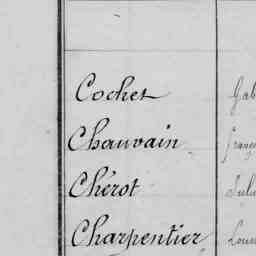 Cochet Gab
Chauvain Franç
Chérot Jul
Charpentier Loui